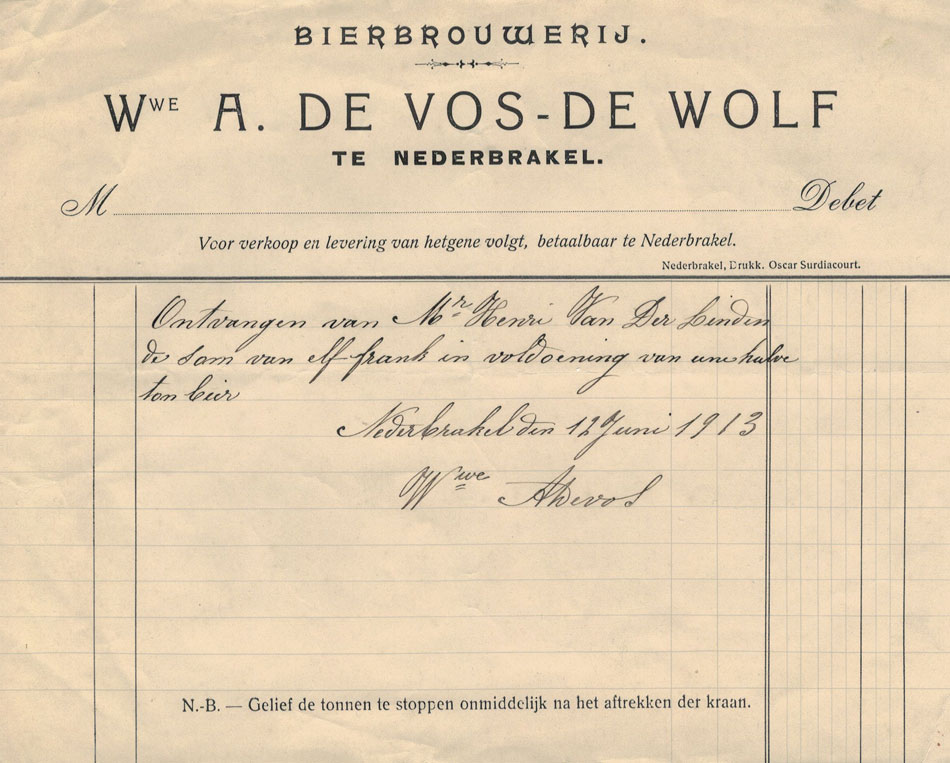 BIERBROUWERIJ.
Wwe A. DE VOS-DE WOLF
TE NEDERBRAKEL.
M Debet
Voor verkoop en levering van hetgene volgt, betaalbaar te Nederbrakel.
Nederbrakel, Drukk. Oscar Surdiacourt.
Ontvangen van Mr Henri Van Der Linden
de som van elf frank in voldoening van une halve
ton bier
Nederbrakel den 12 Juni 1913
Wwe A Devos
N.-B. — Gelief de tonnen te stoppen onmiddelijk na het aftrekken der kraan.